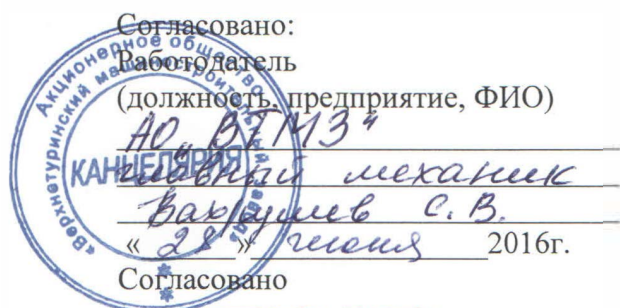 Согласовано:
Работодатель
(должность, предприятие, ФИО)
АО „ВТМЗ"
главный механик
Вахрушев С. В.
« 28 » июня 2016г.
Согласовано
Акционерное общество
«Верхнетуринский машиностроительный завод»
КАНЦЕЛЯРИЯ